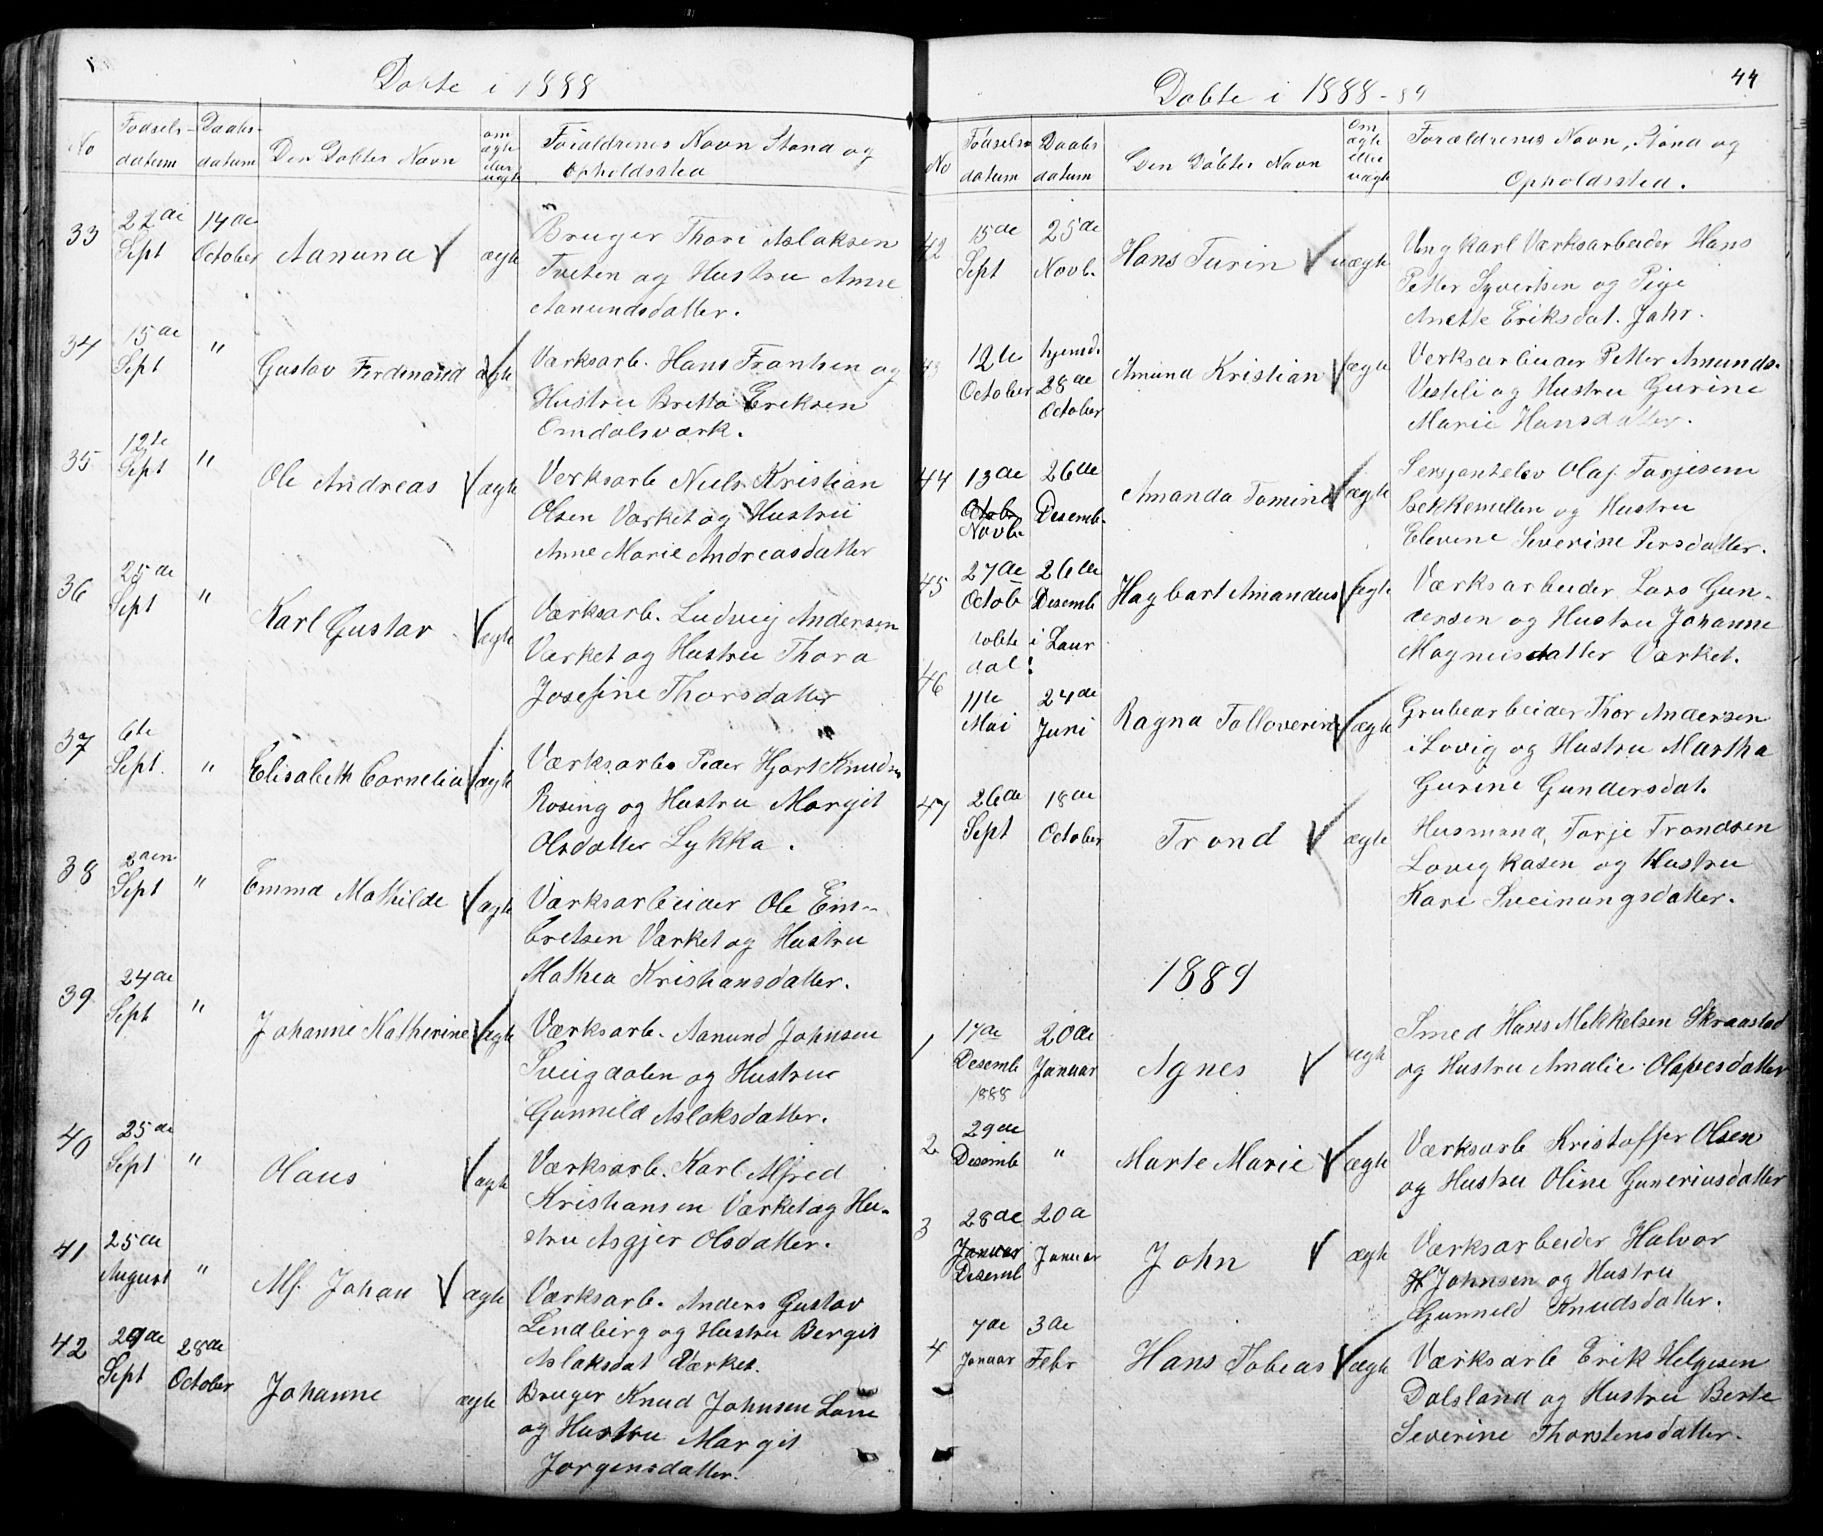 Døbte i 1888
No
Fødsels-
datum
Daabs-
datum
Den Døbtes Navn
om
ægte
eller
uægte
Forældrenes Navn Stand og
Opholdssted
33
22de
Sept
14de
October
Aanund
ægte
Bruger Thore Aslaksen
Tveten og Hustru Anne
Aanundsdatter.
34
15de
Sept
"
Gustav Ferdinand
ægte
Værksarb. Hans Frantsen og
Hustru Britta Eriksen
Omdalsværk.
35
12te
Sept
"
Ole Andreas
ægte
Verksarb Niels Kristian
Olsen Værket og Hustru
Anne Marie Andreasdatter
36
25de
Sept
"
Karl Gustav
ægte
Værksarb. Ludvig Andersen
Værket og Hustru Thora
Josefine Thorsdatter
37
6te
Sept.
"
Elisabeth Cornelia
ægte
Værksarb. Peder Hjort Knuds
Rosing og Hustru Margit
Olsdatter Lykka.
38
2den
Sept
"
Emma Mathilde
ægte
Værksarbeider Ole Em-
bretsen Værket og Hustru
Mathea Kristiansdatter.
39
24de
Sept
"
Johanne Katherine
ægte
Værksarb. Aanund Johnsen
Sveigdalen og Hustru
Gunnild Aslaksdatter.
40
25de
Sept
"
Olaus
ægte
Værksarb. Karl Alfred
Kristiansen Værket og Hu-
stru Asgjer Olsdatter.
41
25de
August
"
Alf Johan
ægte
Værksarb. Anders Gustav
Lindberg og Hustru Bergit
Aslaksdat Værket.
42
29de
Sept
28de
October
Johanne
ægte
Bruger Knud Johnsen Lone
og Hustru Margit
Jørgensdatter.
Døbte i 1888-89
44
No
Fødsels
datum
Daabs
datum
Den Døbtes Navn
Om
ægte
eller
uægte
Forældrenes Navn, Stand og
Opholdssted.
42
15de
Sept
25de
Novb.
Hans Turin
uægte
Ungkarl Værksarbeider Hans
Petter Syvertsen og Pige
Anette Eriksdat. Jahr.
43
12te
October
hjemd.
28de
October
Amund Kristian
ægte
Verksarbeider Petter Amunds.
Vestli og Hustru Gurine
Marie Hansdatter.
44
13de
Octob
Novb.
26de
Desemb.
Amanda Tomine
ægte
Sersjantelev Olaf Tarjesen
Bekkemellen og Hustru
Elevine Severine Persdatter.
45
27de
Octob
26de
Desemb
Hagbart Amandus
ægte
Værksarbeider Lars Gun-
dersen og Hustru Johanne
Magnusdatter Værket.
46
døbte i Laur
dal:
11te
Mai
24de
Juni
Ragna Tolloverine
ægte
Grubearbeider Thor Andersen
i Lovig og Hustru Martha
Gurine Gundersdat.
47
26de
Sept
18de
October
Trond
ægte
Husmand, Tarje Trondsen
Lovigkasen og Hustru
Kari Sveinungsdatter.
1889
1
17de
Desemb
1888
20de
Januar
Agnes
ægte
Smed Hans Mekkelsen Skraastad
og Hustru Amalie Olavesdatter
2
29de
Desemb
"
Marte Marie
ægte
Værksarb Kristoffer Olsen
og Hustru Oline Guneriusdatter
3
28de
Januar
Desemb
20d
Januar
John
ægte
Værksarbeider Halvor
Johnsen og Hustru
Gunnild Knudsdatter.
4
7de
Januar
3de
Febr
Hans Tobeas
ægte
Værksarb Erik Helgesen
Dalsland og Hustru Berte
Severine Thorstensdatter.